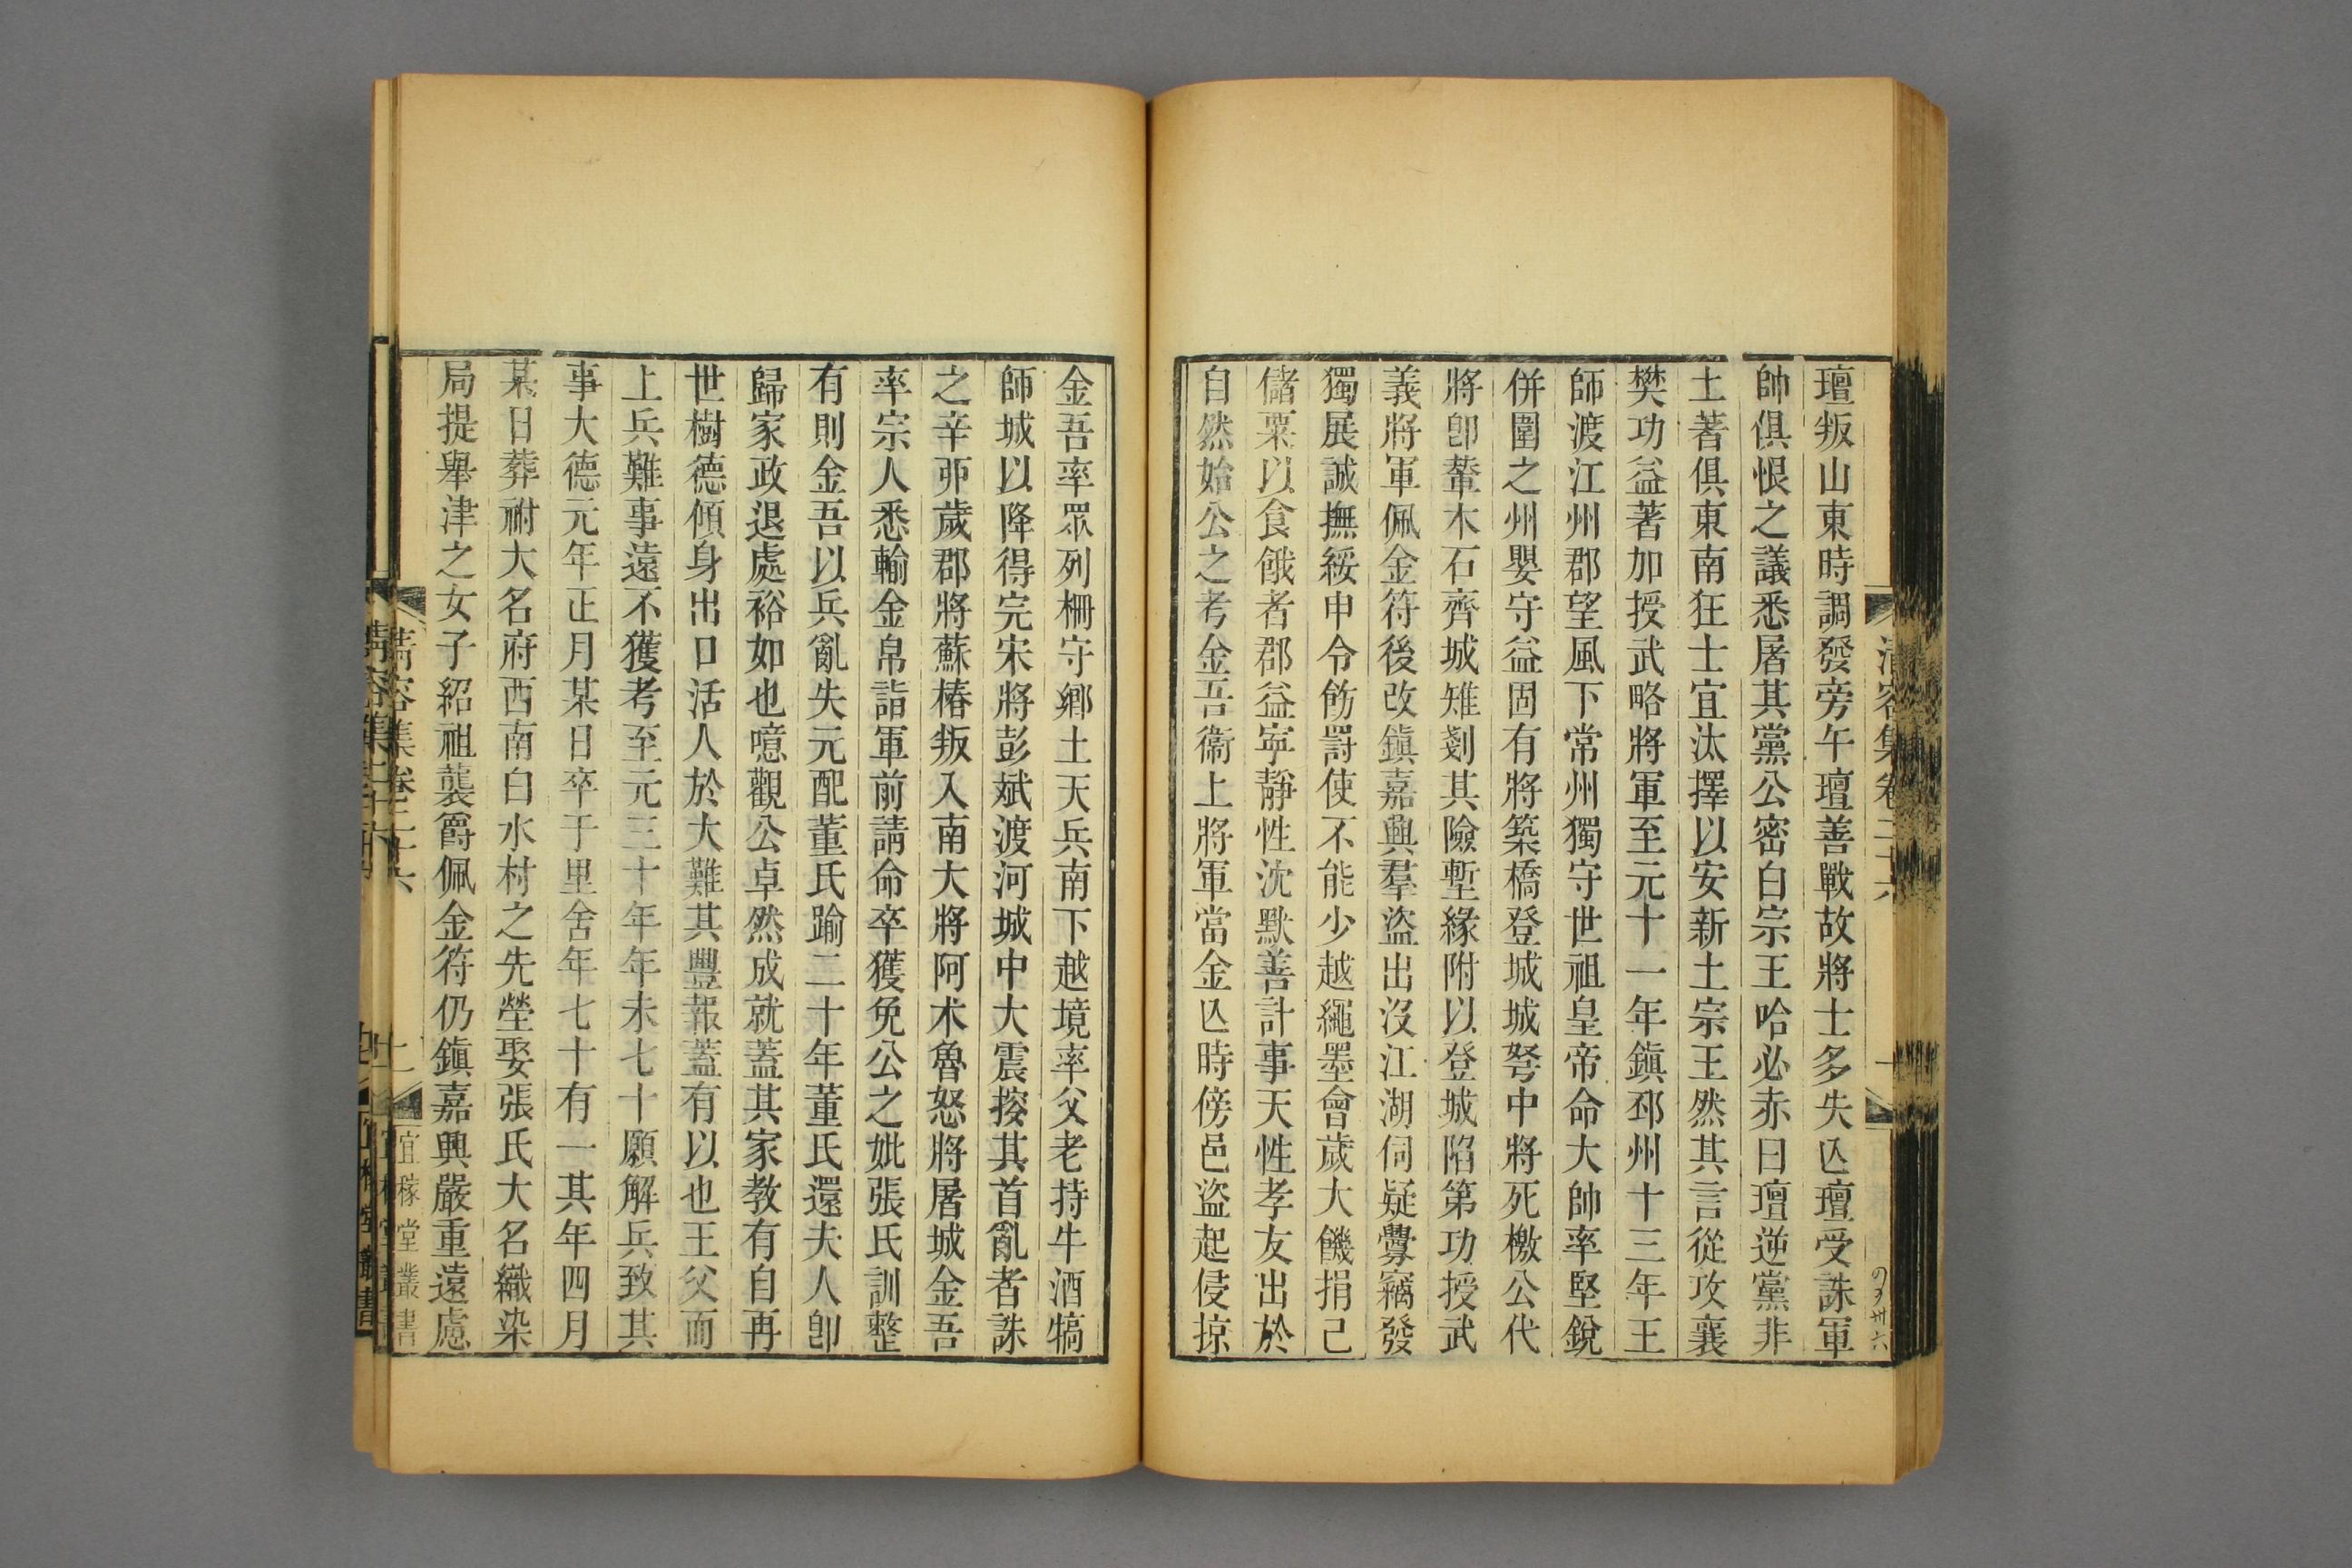 清容集卷二十六
壇叛山東時調發旁午壇善戰故將士多失亾壇受誅軍
帥俱恨之議悉屠其黨公密白宗王哈必赤曰壇逆黨非
土著俱東南狂士宜汰擇以安新土宗王然其言從攻襄
樊功益著加授武略將軍至元十一年鎭邳州十三年王
師渡江州郡望風下常州獨守世祖皇帝命大帥率堅銳
併圍之州嬰守益固有將築橋登城城弩中將死檄公代
將卽輂木石齊城雉剗其險塹緣附以登城陷第功授武
義將軍佩金符後改鎭嘉興羣盜出沒江湖伺疑釁竊發
獨展誠撫綏申令飭罰使不能少越繩墨會歲大饑捐己
儲粟以食餓者郡益寧靜性沈默善計事天性孝友出於
自然始公之考金吾衞上將軍當金亾時傍邑盜起侵掠
金吾率眾列柵守鄉土天兵南下越境率父老持牛酒犒
師城以降得完宋將彭斌渡河城中大震按其首亂者誅
之辛丣歲郡將蘇椿叛入南大將阿术魯怒將屠城金吾
率宗人悉輸金帛詣軍前請命卒獲免公之妣張氏訓整
有則金吾以兵亂失元配董氏踰二十年董氏還夫人卽
歸家政退處裕如也噫觀公卓然成就蓋其家敎有自再
世樹德傾身出口活人於大難其豐報蓋有以也王父而
上兵難事遠不獲考至元三十年年未七十願解兵致其
事大德元年正月某日卒于里舍年七十有一其年四月
某日葬祔大名府西南白水村之先塋娶張氏大名織染
局提舉津之女子紹祖襲爵佩金符仍鎭嘉興嚴重遠慮
清容集卷二十六
宜稼堂叢書